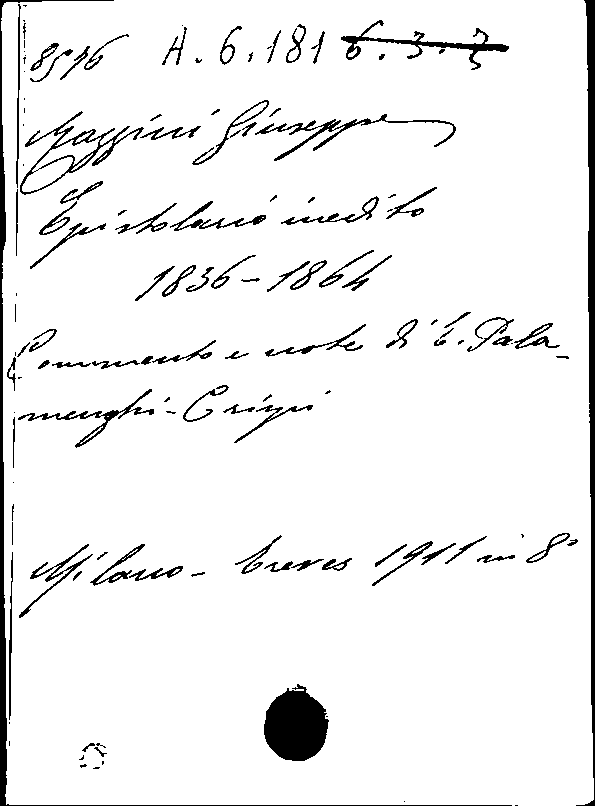 8516 A.6.181 6.3.3
Mazzini Giuseppe
Epistolario inedito
1836-1864
Commento e note di E. Pala-
menghi-Crispi
Milano - Treves 1911 in 8°